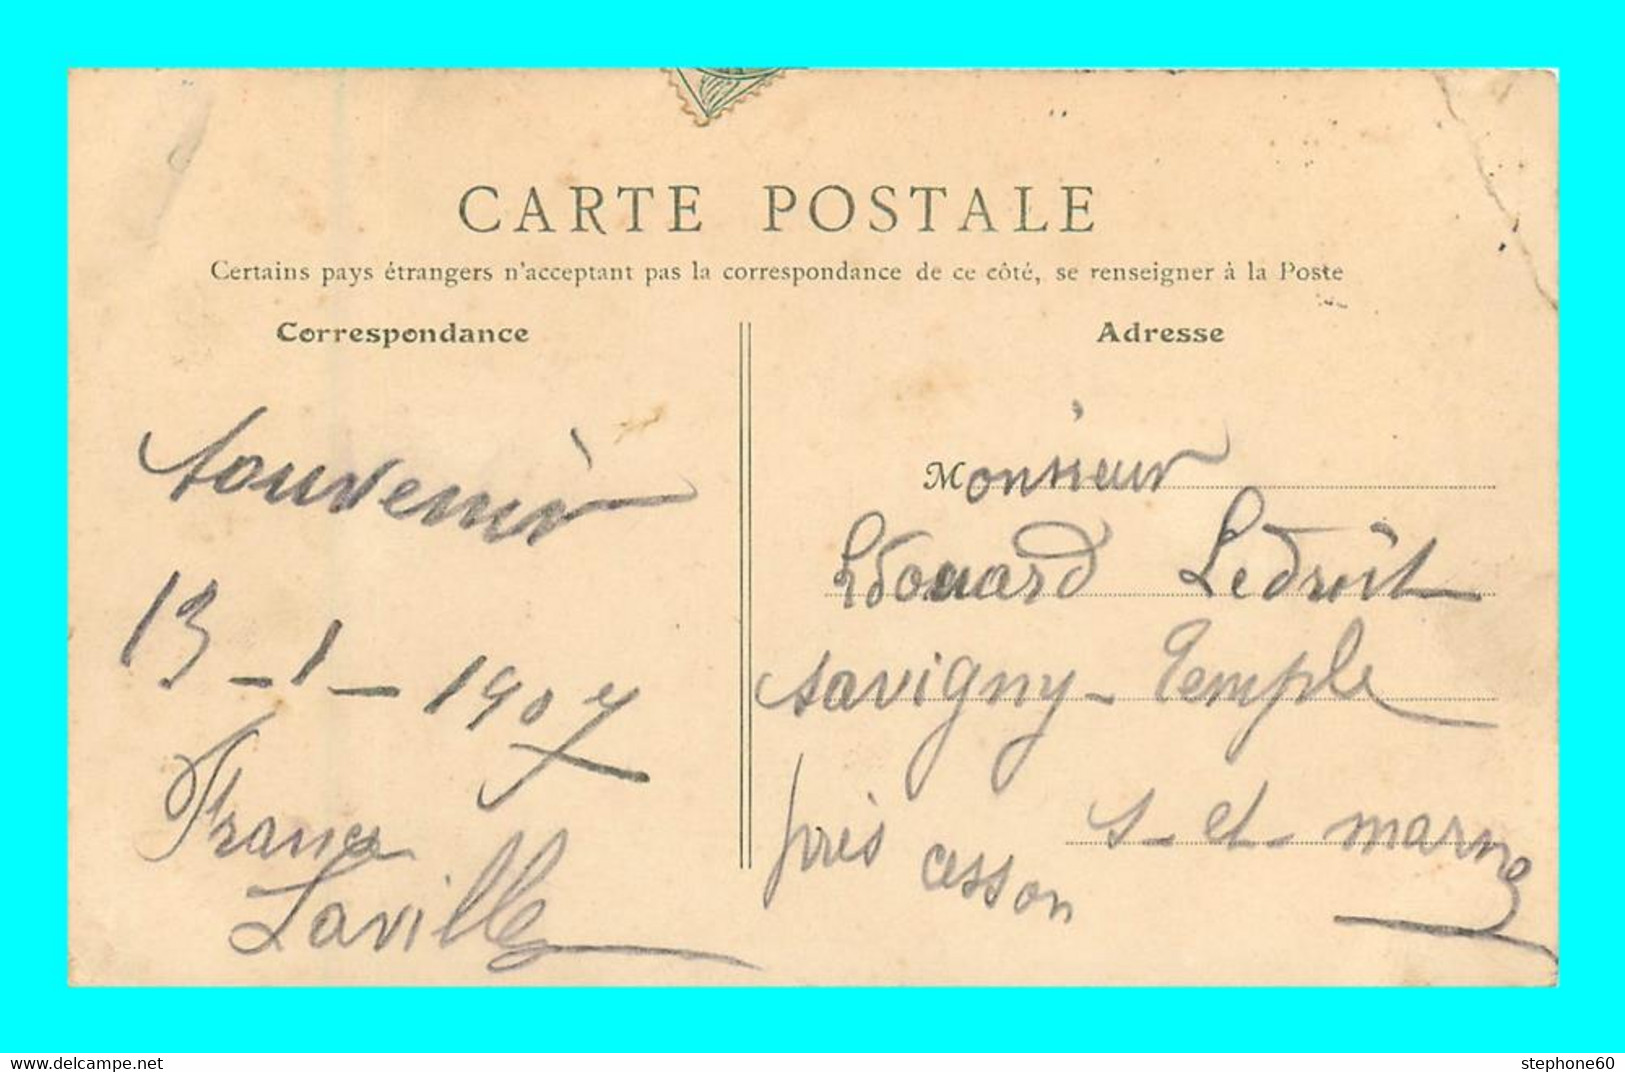 CARTE POSTALE
Certains pays étrangers n'acceptant pas la correspondance de ce côté, se renseigner à la Poste
Correspondance
Souvenir
13-1-1907
Laville
Adresse
Monsieur
Edouard Ledroit
Savigny-Temple
s-et-marne
près cesson
www.delcampe.net
stephone60